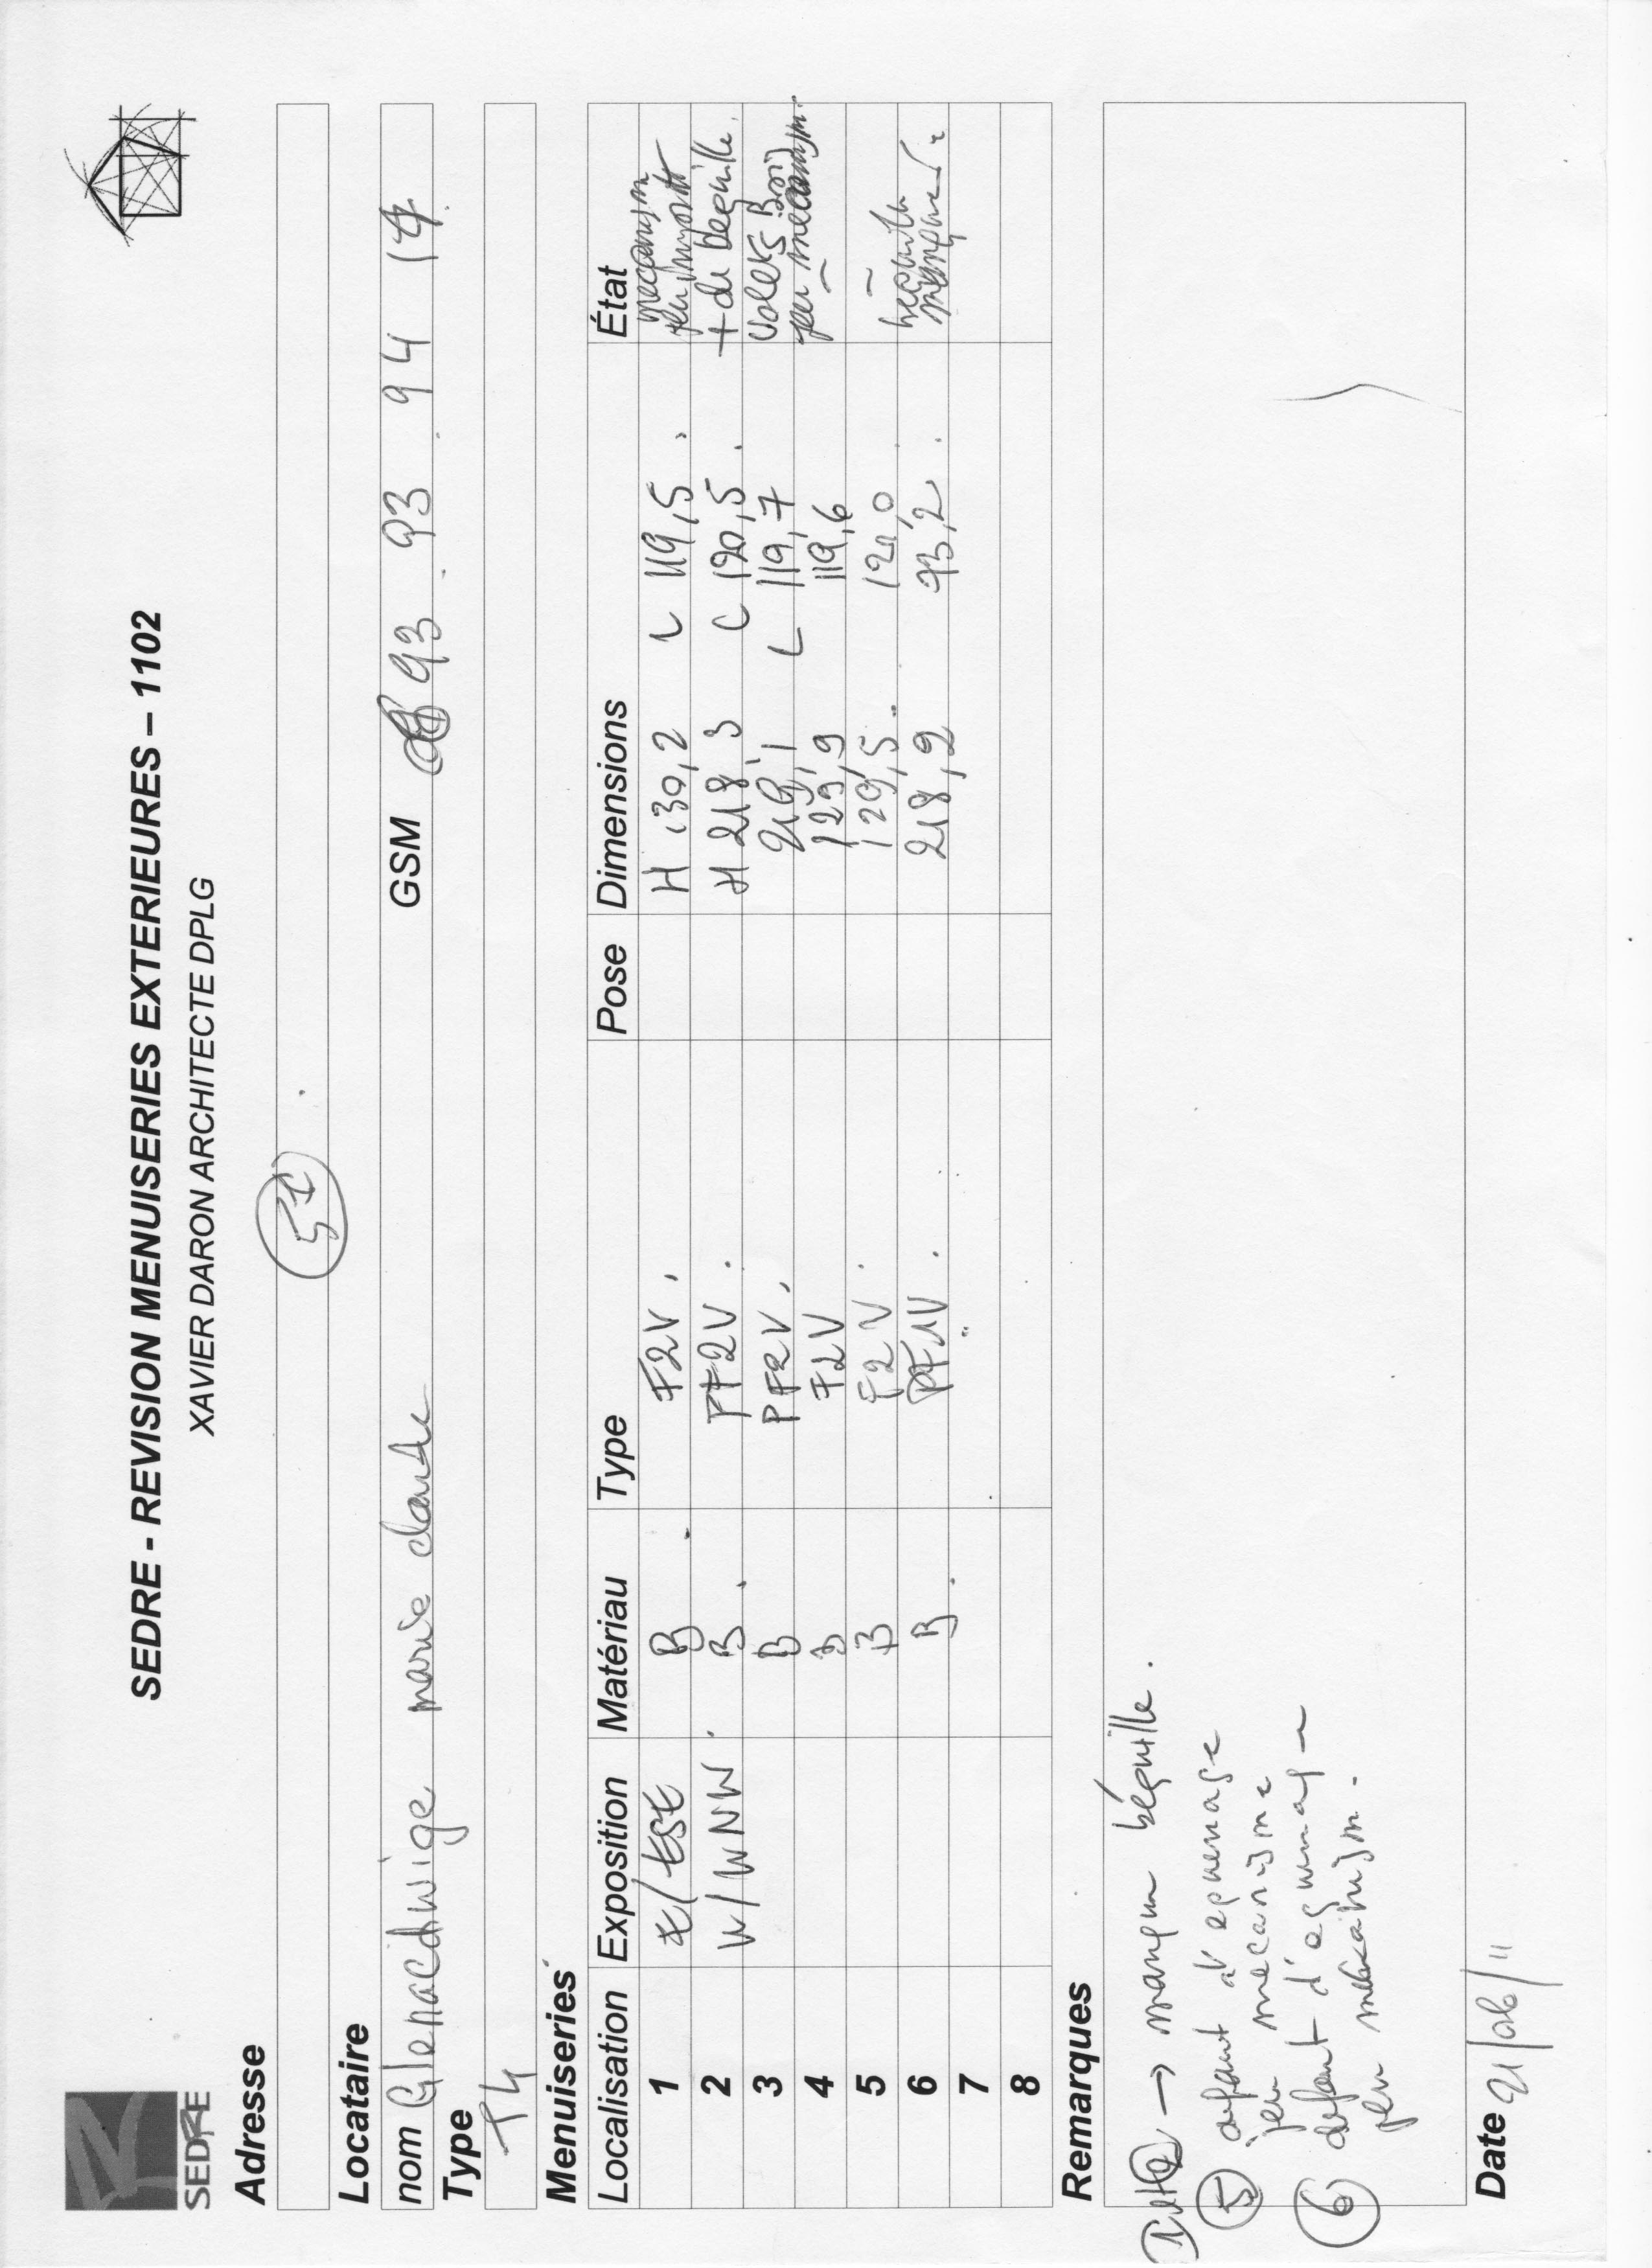 SEDRE - REVISION MENUISERIES EXTERIEURES – 1102
XAVIER DARON ARCHITECTE DPLG
SEDRE
Adresse
51
Locataire
nom marie claude GSM 93 93 94 14
Type
T4
Menuiseries
Localisation Exposition Matériau Type Pose Dimensions État
1 E/ESE B F2V H 130,2 L 119,5 mecanism
2 W/WNW B PF2V H 218,3 L 120,5 + de bequille
3 B PF2V 219,1 L 119,7 Volets Bois
4 B F2V 129,9 119,6 jeu mecanism
5 B F2V 129,5 120,0
6 B PF1V 218,2 93,2 bequille
7
8
Remarques
1 et 2 → manque béquille.
5 defaut d'equerrage
jeu mecanisme
6 defaut d'equerrage
jeu mecanism.
Date 21/06/11